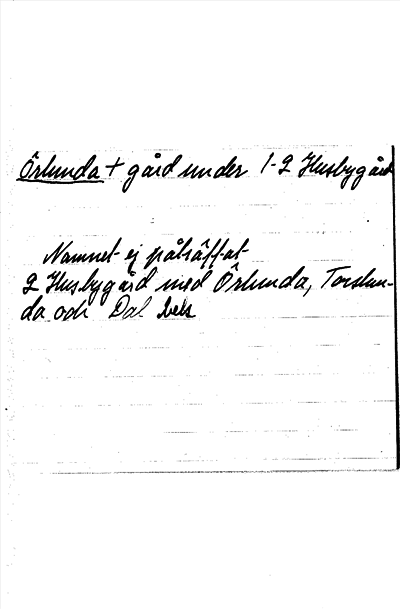 Örlunda + gård under 1-2 Husbygård
Namnet ej påträffat
2 Husbygård med Örlunda, Torslun-
da och Dal